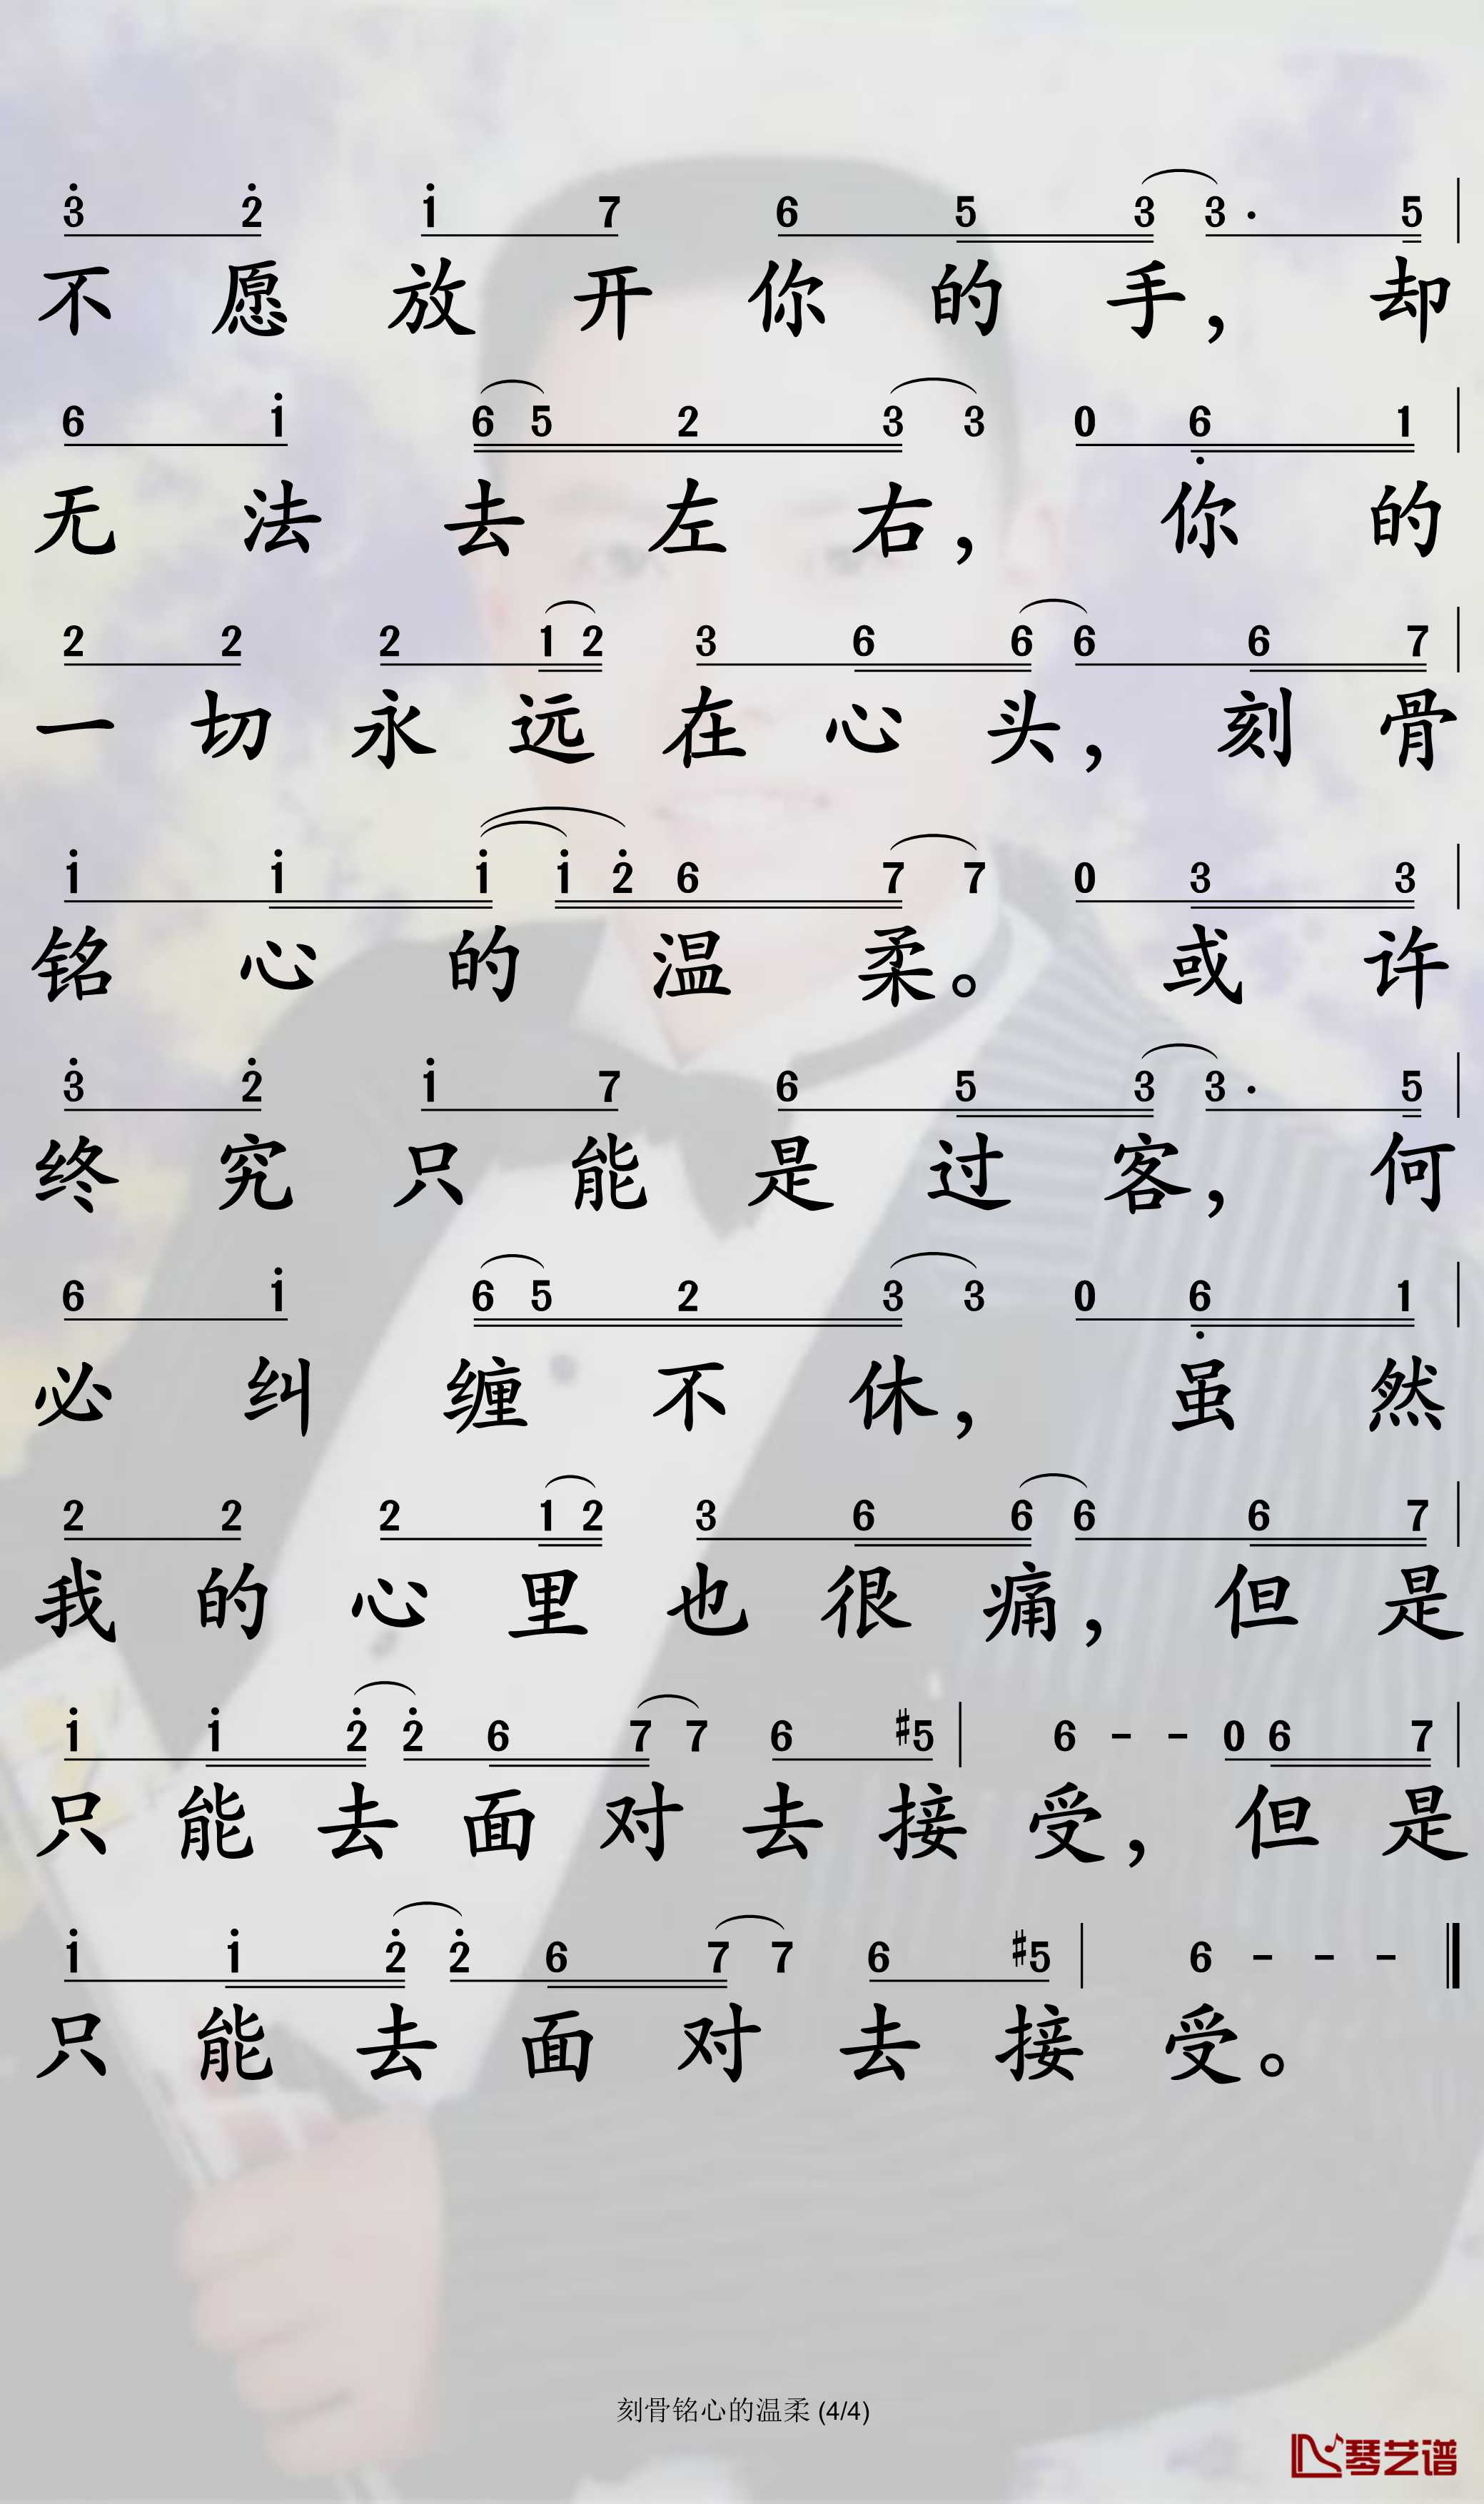 3̇ 2̇ 1̇ 7 6 5 3 3· 5 |
不愿放开你的手，却
6 1̇ 6 5 2 3 3 0 6̣ 1 |
无法去左右，你的
2 2 2 1 2 3 6 6 6 6 7 |
一切永远在心头，刻骨
1̇ 1̇ 1̇ 1̇ 2̇ 6 7 7 0 3 3 |
铭心的温柔。或许
3̇ 2̇ 1̇ 7 6 5 3 3· 5 |
终究只能是过客，何
6 1̇ 6 5 2 3 3 0 6̣ 1 |
必纠缠不休，虽然
2 2 2 1 2 3 6 6 6 6 7 |
我的心里也很痛，但是
1̇ 1̇ 2̇ 2̇ 6 7 7 6 #5 | 6 - - 0 6 7 |
只能去面对去接受，但是
1̇ 1̇ 2̇ 2̇ 6 7 7 6 #5 | 6 - - - ‖
只能去面对去接受。
刻骨铭心的温柔 (4/4)
琴艺谱